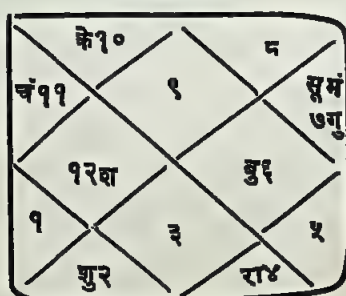 के१० ८
चं११ ९ सू मं
७गु
१२श बु६
१ ३ ५
शु२ रा४